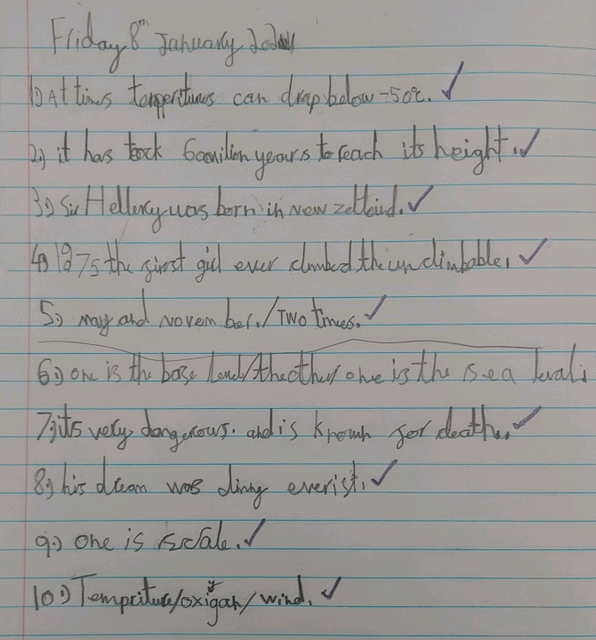 Friday 8th January 2021
1) At times temperitures can drap below -50c.
2.) it has took 60 milion years to reach its height.
3.) Sir Hellery was born in new
4.) 1975 the first girl ever climbed the unclimbable.
5.) may and november./Two times.
6.) one is the base level/the other one is the sea leval.
7.) its very dangerous. and is known for death.
8.) his dream was everist.
9.) one is scale.
10.) Tempriture/oxigan/wind.